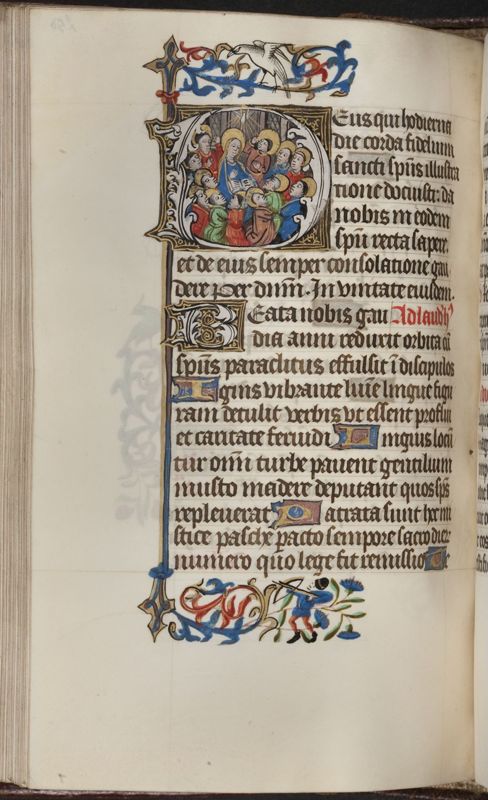 Eus qui hodierna
die corda fidelium
sancti spūs illustra
tione docuisti: da
nobis in eodem
spū recta sapere.
et de eius semper consolatione gau
dere Per dnm̄. In unitate eiusdem.
BEata nobis gau Ad laudes
dia anni reduxit orbita cū
spūs paraclitus effulsit ī discipulos
Ignis vibrante lumīe lingue figu
ram detulit verbis ut essent proflui
et caritate feruidi Linguis locū
tur omī turbe pavent gentilium
musto madere deputant quos sps̄
repleuerat Patrata sunt hec mi
stice pasche peracto tempore sacro dier
numero quo lege fit remissio Te